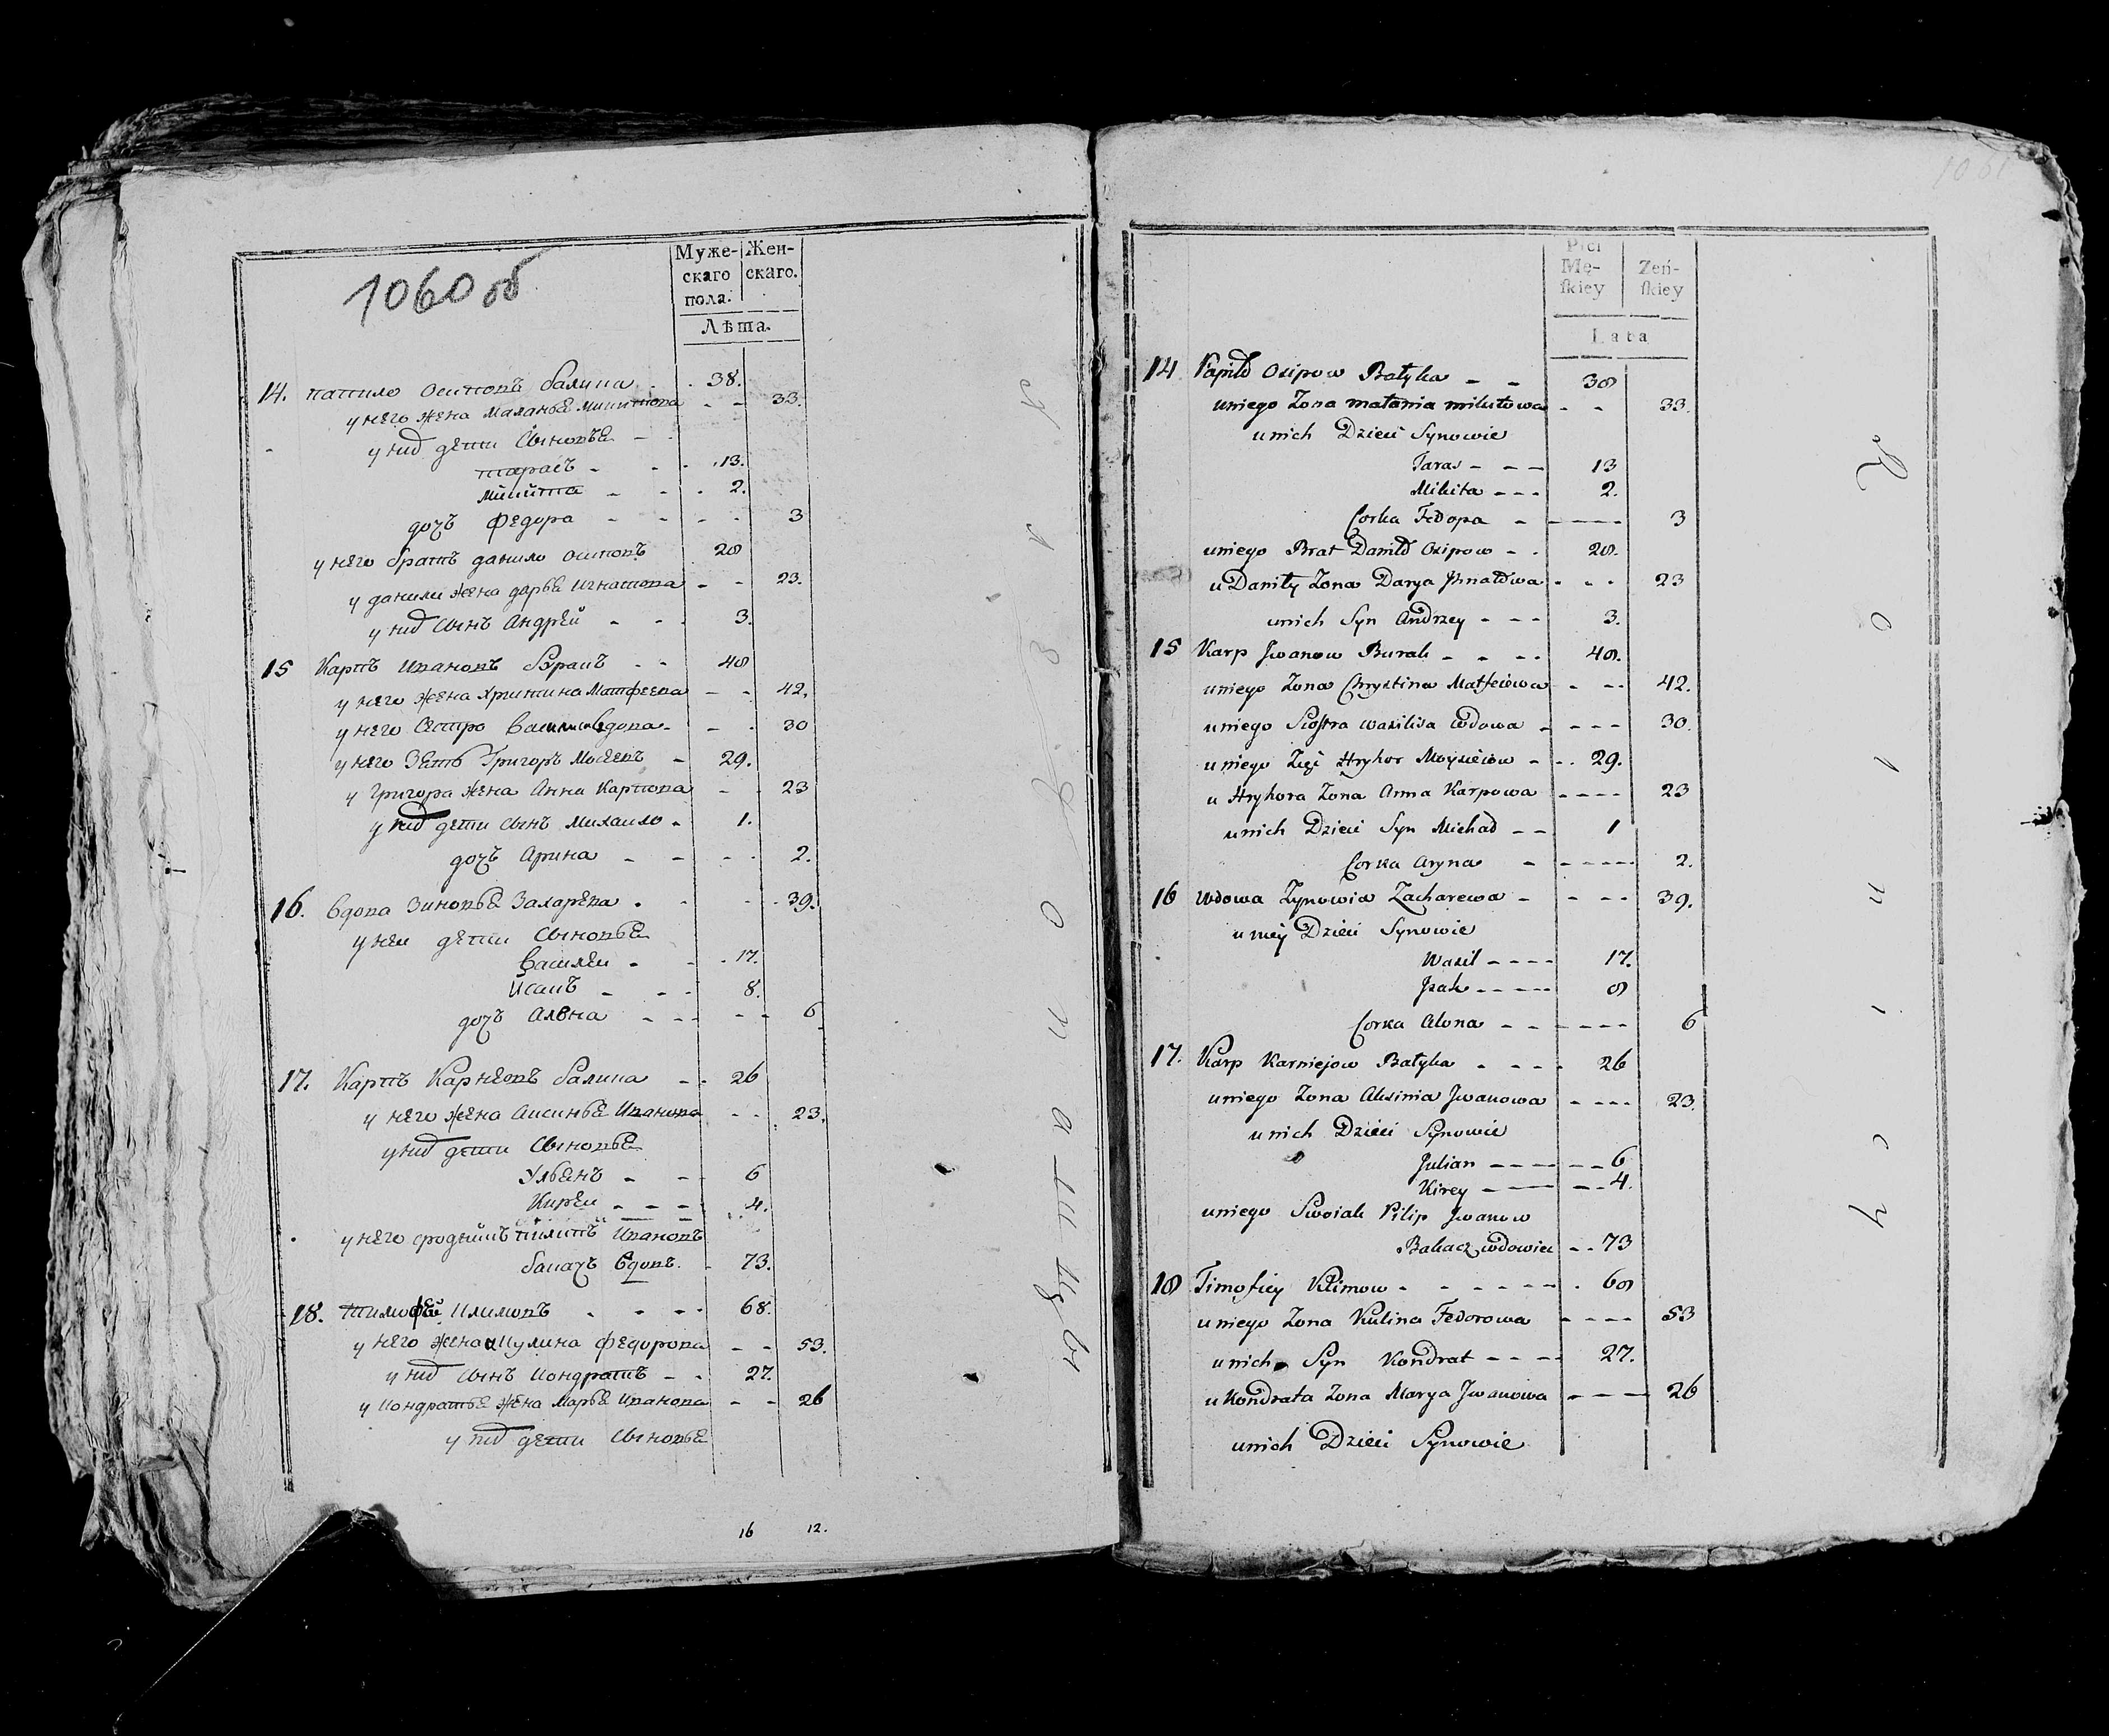 1060 об
Муже-
скаго
пола.
Жен-
скаго.
Лѣта.
14. папило осиповъ балыка 38.
у него жена маланья микитова 33.
у них дети сыновья
тарасъ 13.
микита 2.
дочь федора 3
у него братъ данило осиповъ 28
у данили жена дарья игнатова 23.
у них сынъ андрей 3.
15 карпъ ивановъ буракъ 48
у него жена христина матфеева 42.
у него сестра василиса вдова 30
у него зять григоръ мосеевъ 29.
у григора жена анна карпова 23
у них дети сынъ михаило 1.
дочь арина 2.
16. вдова зиновья захарева 39.
у неи дети сыновья
василеи 17.
исакъ 8.
дочь алена 6
17. карпъ карнеовъ балыка 26
у него жена аксинья иванова 23.
у них дети сыновья
ульянъ 6
кирей 4.
у него сродникъ пилипъ ивановъ
бакачъ вдовъ. 73.
18. тимофей климовъ 68.
у него жена кулина федорова 53.
у них сынъ кондратъ 27.
у кондратья жена марья иванова 26
у них дети сыновья
16 12.
1061
Płci
Mę-
skiey
Zeń-
skiey
Lata
14 Papiło Osipow Bałyka 38
u niego Zona małania mikitowa 33.
u nich Dzieci Synowie
Taras 13
Mikita 2.
Corka Fedora 3
u niego Brat Daniło Osipow 28.
u Daniły Zona Darya Jhnatowa 23
u nich Syn Andrzey 3.
15 Karp Jwanow Burak 48.
u niego Zona Chrystina Matfeiowa 42.
u niego Siostra wasilisa wdowa 30.
u niego Zięć Hryhor Moysieiow 29.
u Hryhora Zona Anna Karpowa 23
u nich Dzieci Syn Michało 1
Corka Aryna 2.
16 wdowa Zynowia Zacharewa 39.
u niey Dzieci Synowie
Wasil 17.
Jsak 8
Corka Alona 6
17. Karp Karniejow Bałyka 26
u niego Zona Aksinia Jwanowa 23.
u nich Dzieci Synowie
Julian 6
Kirey 4.
u niego Swoiak Pilip Jwanow
Bakacz wdowiec 73
18 Timofiey Klimow 68
u niego Zona Kulina Fedorowa 53
u nich Syn Kondrat 27.
u Kondrata Zona Marya Jwanowa 26
u nich Dzieci Synowie